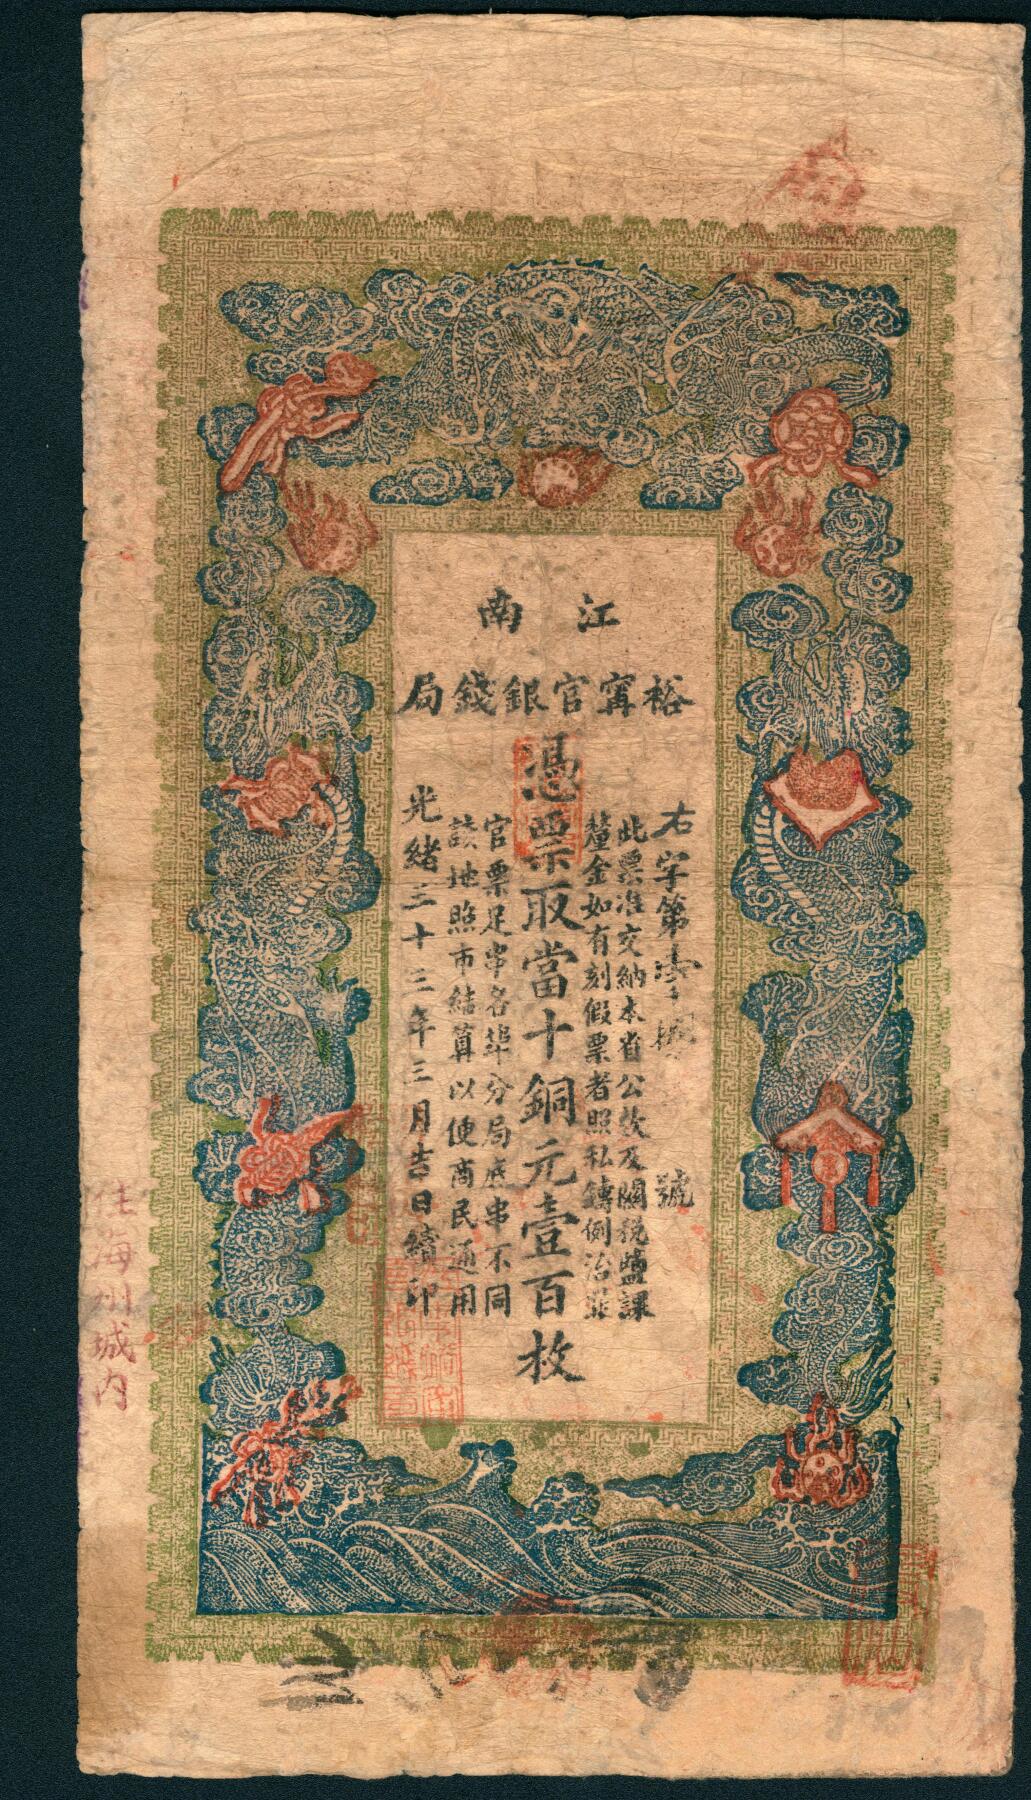 江南
裕甯官銀錢局
右字第零 號
此票准交納本省公款及關稅鹽課
釐金如有刻假票者照私鑄例治罪
憑票取當十銅元壹百枚
官票足串各埠分局底串不同
該地照市結算以便商民通用
光緒三十三年三月吉日續印
住海州城內